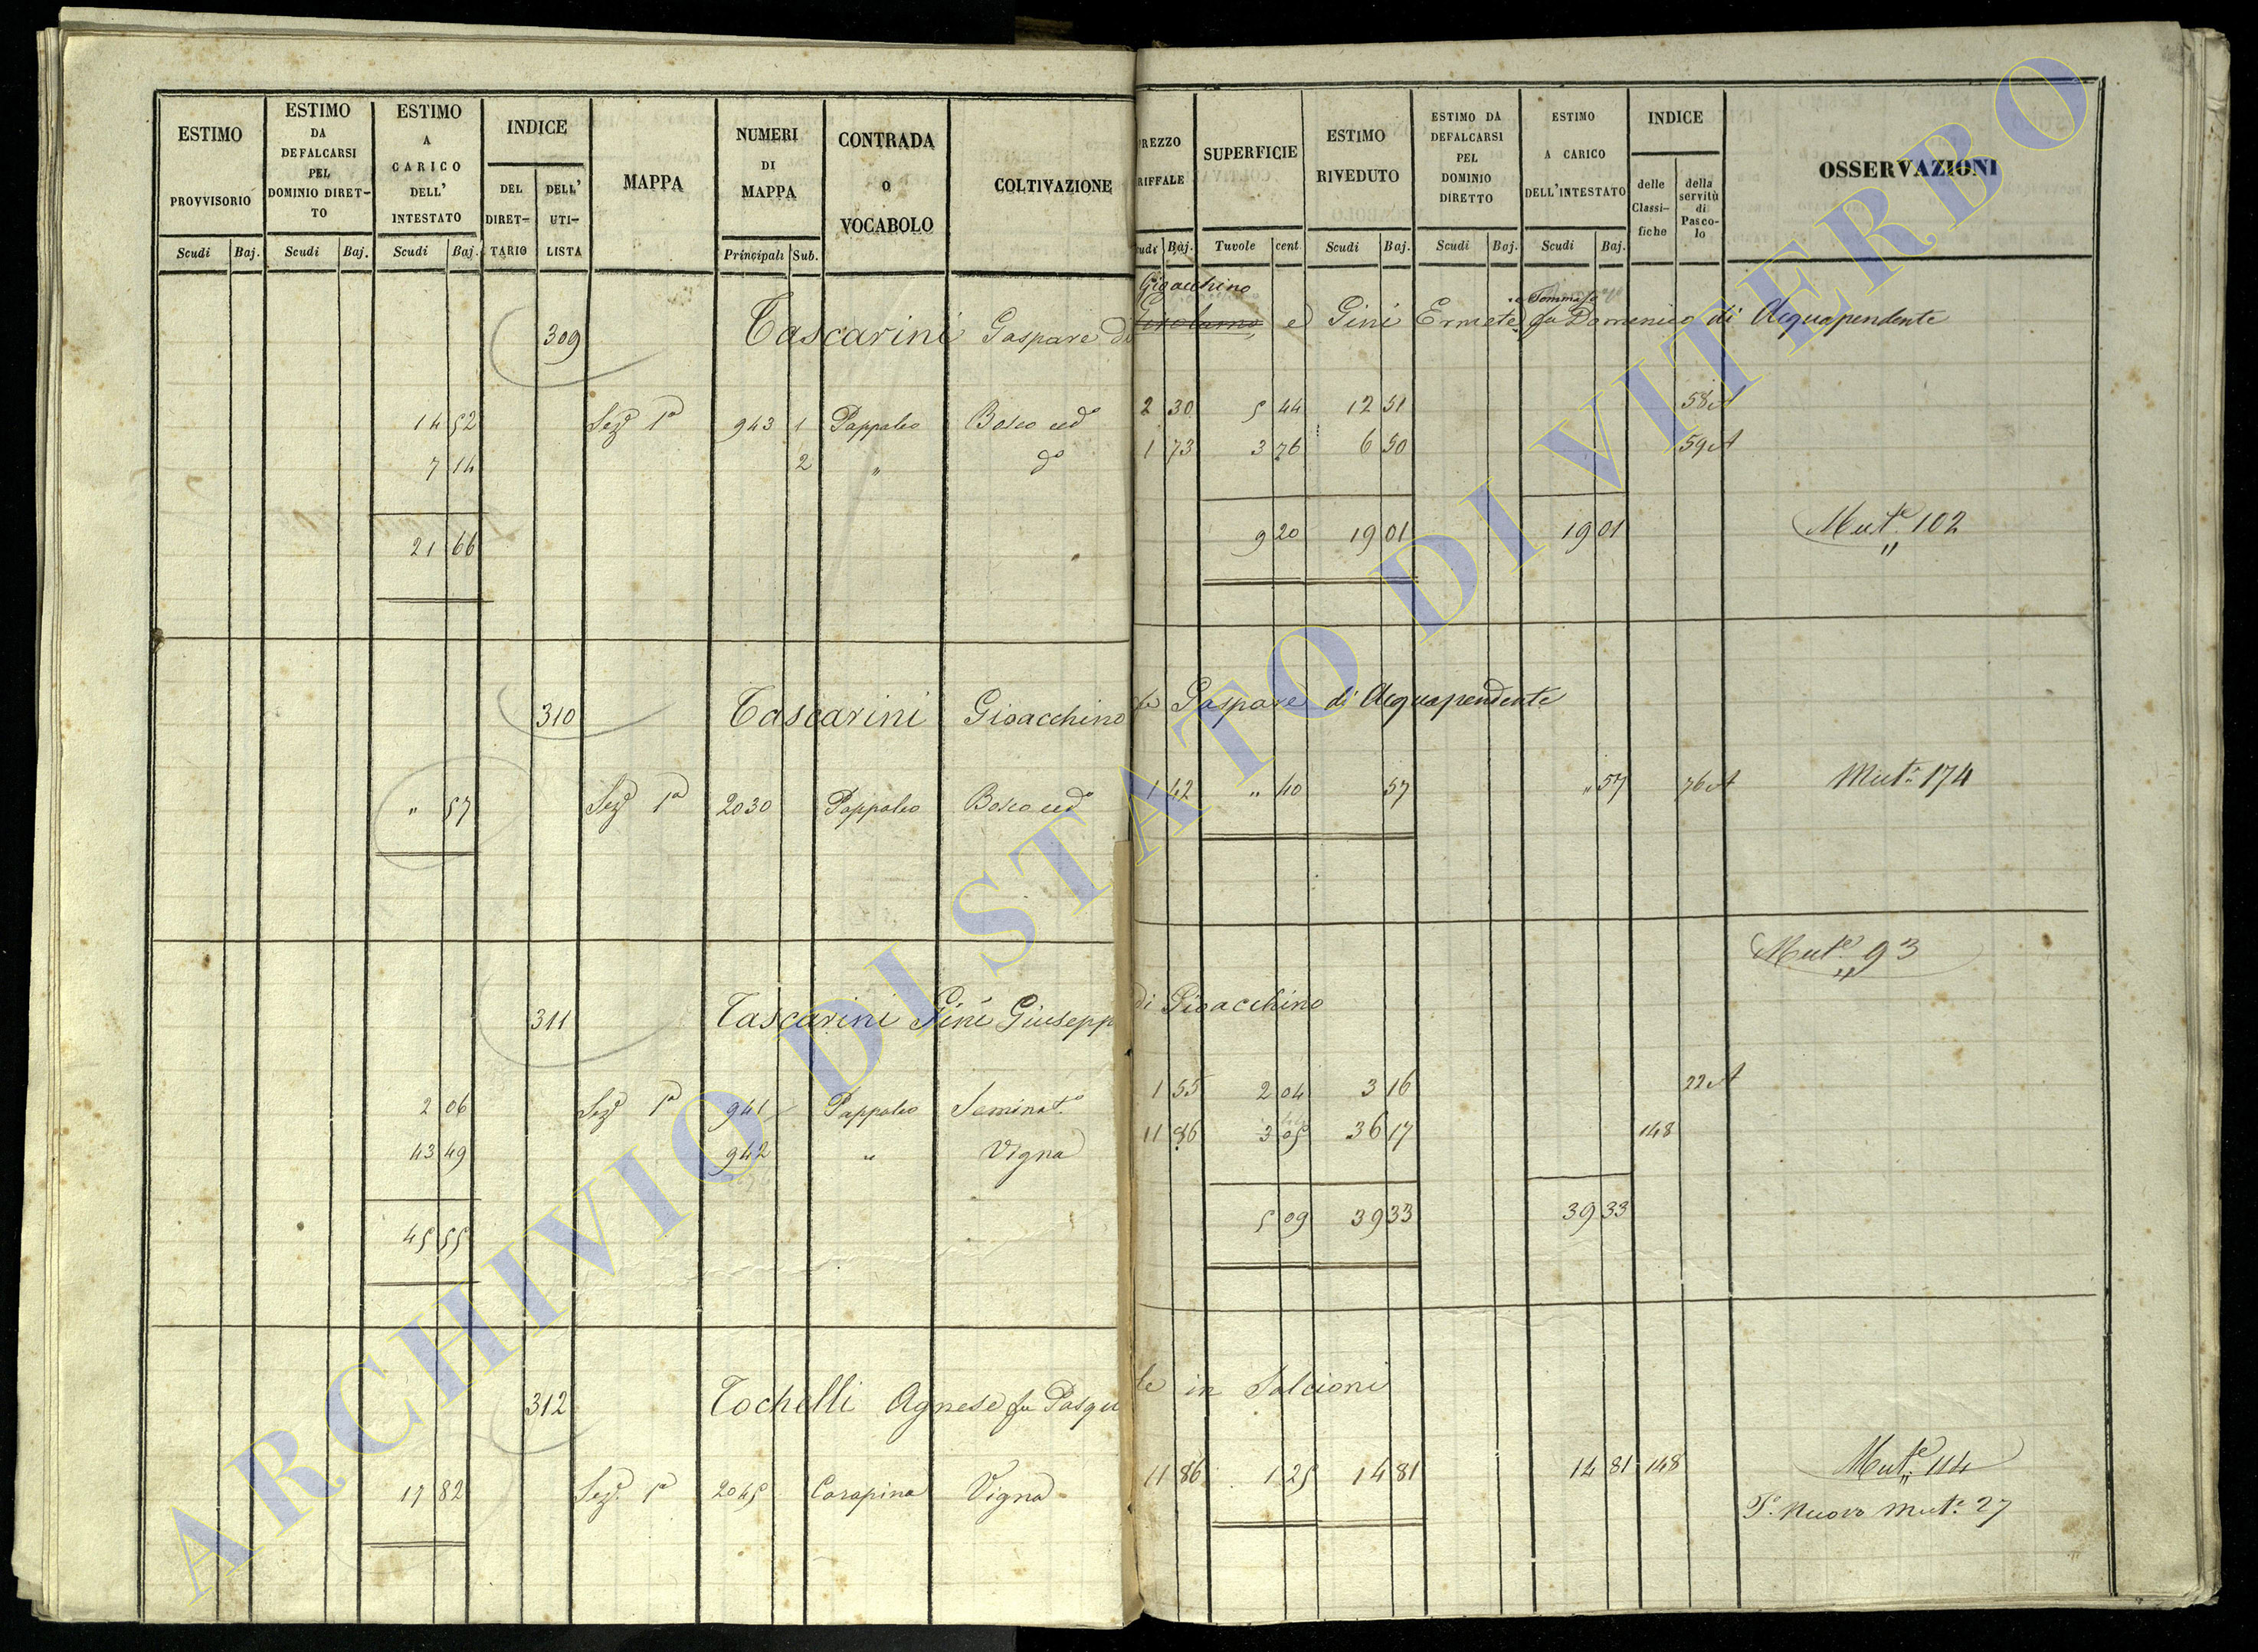 ESTIMO PROVVISORIO
ESTIMO DA DEFALCARSI PEL DOMINIO DIRET-TO
ESTIMO A CARICO DELL' INTESTATO
INDICE
DEL DIRET-TARIO
DELL' UTI-LISTA
MAPPA
NUMERI DI MAPPA
CONTRADA O VOCABOLO
COLTIVAZIONE
REZZO RIFFALE
SUPERFICIE
ESTIMO RIVEDUTO
ESTIMO DA DEFALCARSI PEL DOMINIO DIRETTO
ESTIMO A CARICO DELL'INTESTATO
INDICE
delle Classi-fiche
della servitù di Pasco-lo
OSSERVAZIONI
Scudi Baj. Scudi Baj. Scudi Baj. Principali Sub.
Baj. Tavole cent. Scudi Baj. Scudi Baj. Scudi Baj.
Gioacchino
Tommaso
309 Tascarini Gaspare di Girolamo e Pini Ermete fu Domenico di Acquapendente
14 52 Seze 1a 943 1 Pappaleo Bosco cedo 2 30 5 44 12 51 58 A
7 14 2 " do 1 73 3 76 6 50 59 A
21 66 9 20 19 01 19 01 Mute 102
310 Tascarini Gioacchino fu Gaspare di Acquapendente
" 57 Seze 1a 2030 Pappaleo Bosco cedo 1 42 " 40 57 " 57 76 A Mute 174
Mute 93
311 Tascarini Pini Giusepp di Gioacchino
2 06 Seze 1a 941 Pappaleo Seminato 1 55 2 04 3 16 22 A
43 49 942 " Vigna 11 86 3 05 36 17 148
45 55 5 09 39 33 39 33
312 Tochelli Agnese fu Pasqu le in Salcioni
17 82 Sezе 1a 2045 Carapina Vigna 11 86 1 25 14 81 14 81 148 Mute 114
To Nuovo Mute 27
ARCHIVIO DI STATO DI VITERBO